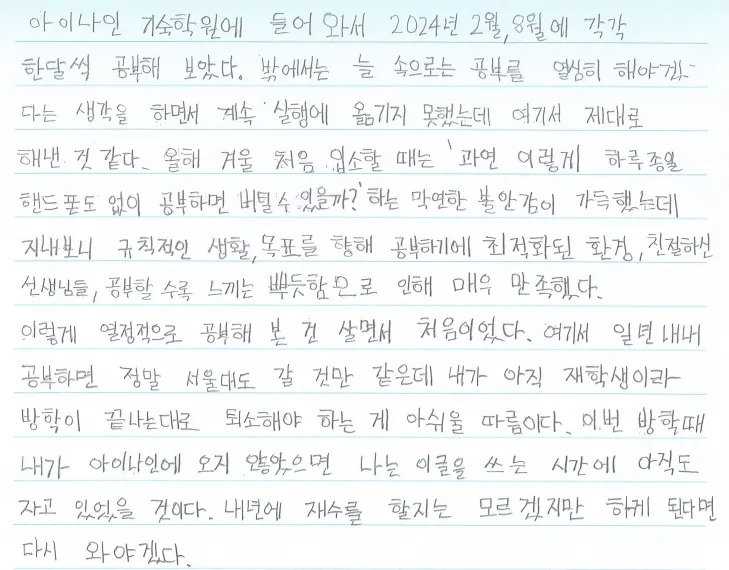 아이나인 기숙학원에 들어 와서 2024년 2월, 8월에 각각
한달씩 공부해 보았다. 밖에서는 늘 속으로는 공부를 열심히 해야겠
다는 생각을 하면서 계속 실행에 옮기지 못했는데 여기서 제대로
해낸 것 같다. 올해 겨울 처음 입소할 때는 '과연 이렇게 하루종일
핸드폰도 없이 공부하면 버틸 수 있을까?' 하는 막연한 불안감이 가득했는데
지내보니 규칙적인 생활, 목표를 향해 공부하기에 최적화된 환경, 친절하신
선생님들, 공부할 수록 느끼는 뿌듯함으로 인해 매우 만족했다.
이렇게 열정적으로 공부해 본 건 살면서 처음이었다. 여기서 일년 내내
공부하면 정말 서울대도 갈 것만 같은데 내가 아직 재학생이라
방학이 끝나는대로 퇴소해야 하는 게 아쉬울 따름이다. 이번 방학때
내가 아이나인에 오지 않았으면 나는 이글을 쓰는 시간에 아직도
자고 있었을 것이다. 내년에 재수를 할지는 모르겠지만 하게 된다면
다시 와야겠다.